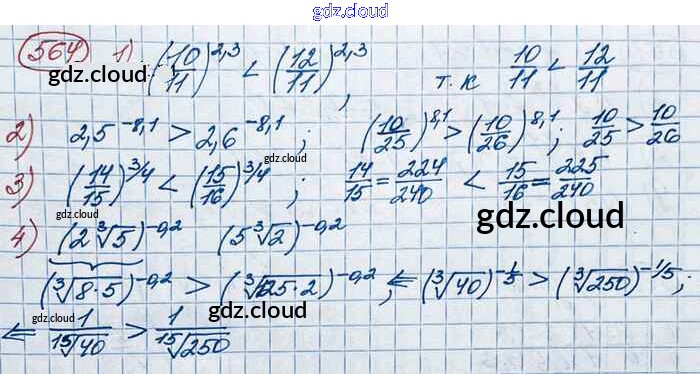 gdz.cloud
564 1) (10/11)^2,3 < (12/11)^2,3, т.к 10/11 < 12/11
gdz.cloud
gdz.cloud
2) 2,5^-8,1 > 2,6^-8,1; (10/25)^8,1 > (10/26)^8,1; 10/25 > 10/26
gdz.cloud
3) (14/15)^3/4 < (15/16)^3/4; 14/15 = 224/240 < 15/16 = 225/240
gdz.cloud
gdz.cloud
4) (2∛5)^-0,2 (5∛2)^-0,2
gdz.cloud
(∛8·5)^-0,2 > (∛125·2)^-0,2, ⇐ (∛40)^-1/5 > (∛250)^-1/5;
gdz.cloud
gdz.cloud
⇐ 1/¹⁵√40 > 1/¹⁵√250
gdz.cloud